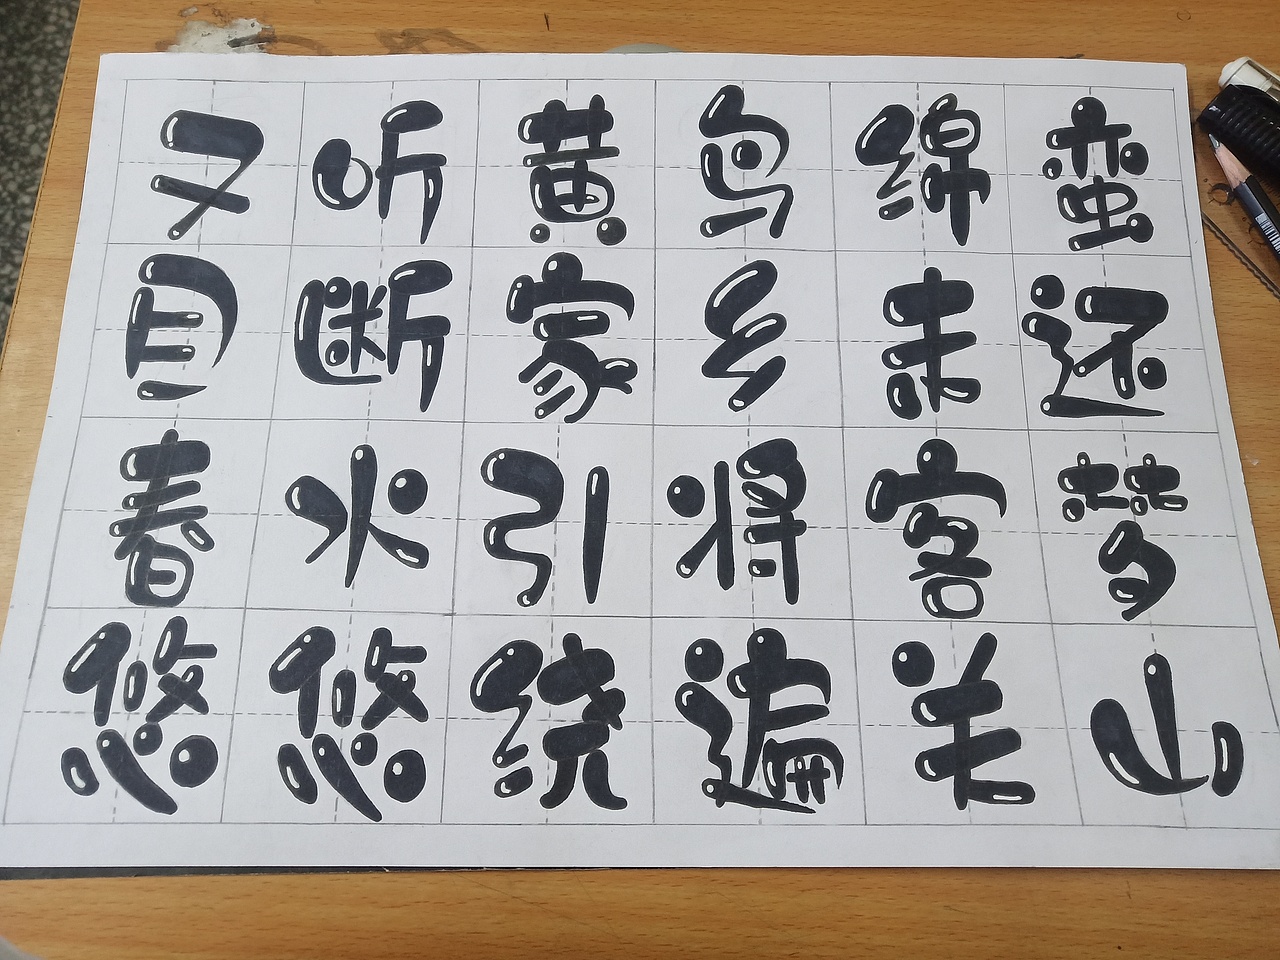 又听黄鸟绵蛮
目断家乡未还
春火引将客梦
悠悠绕遍关山